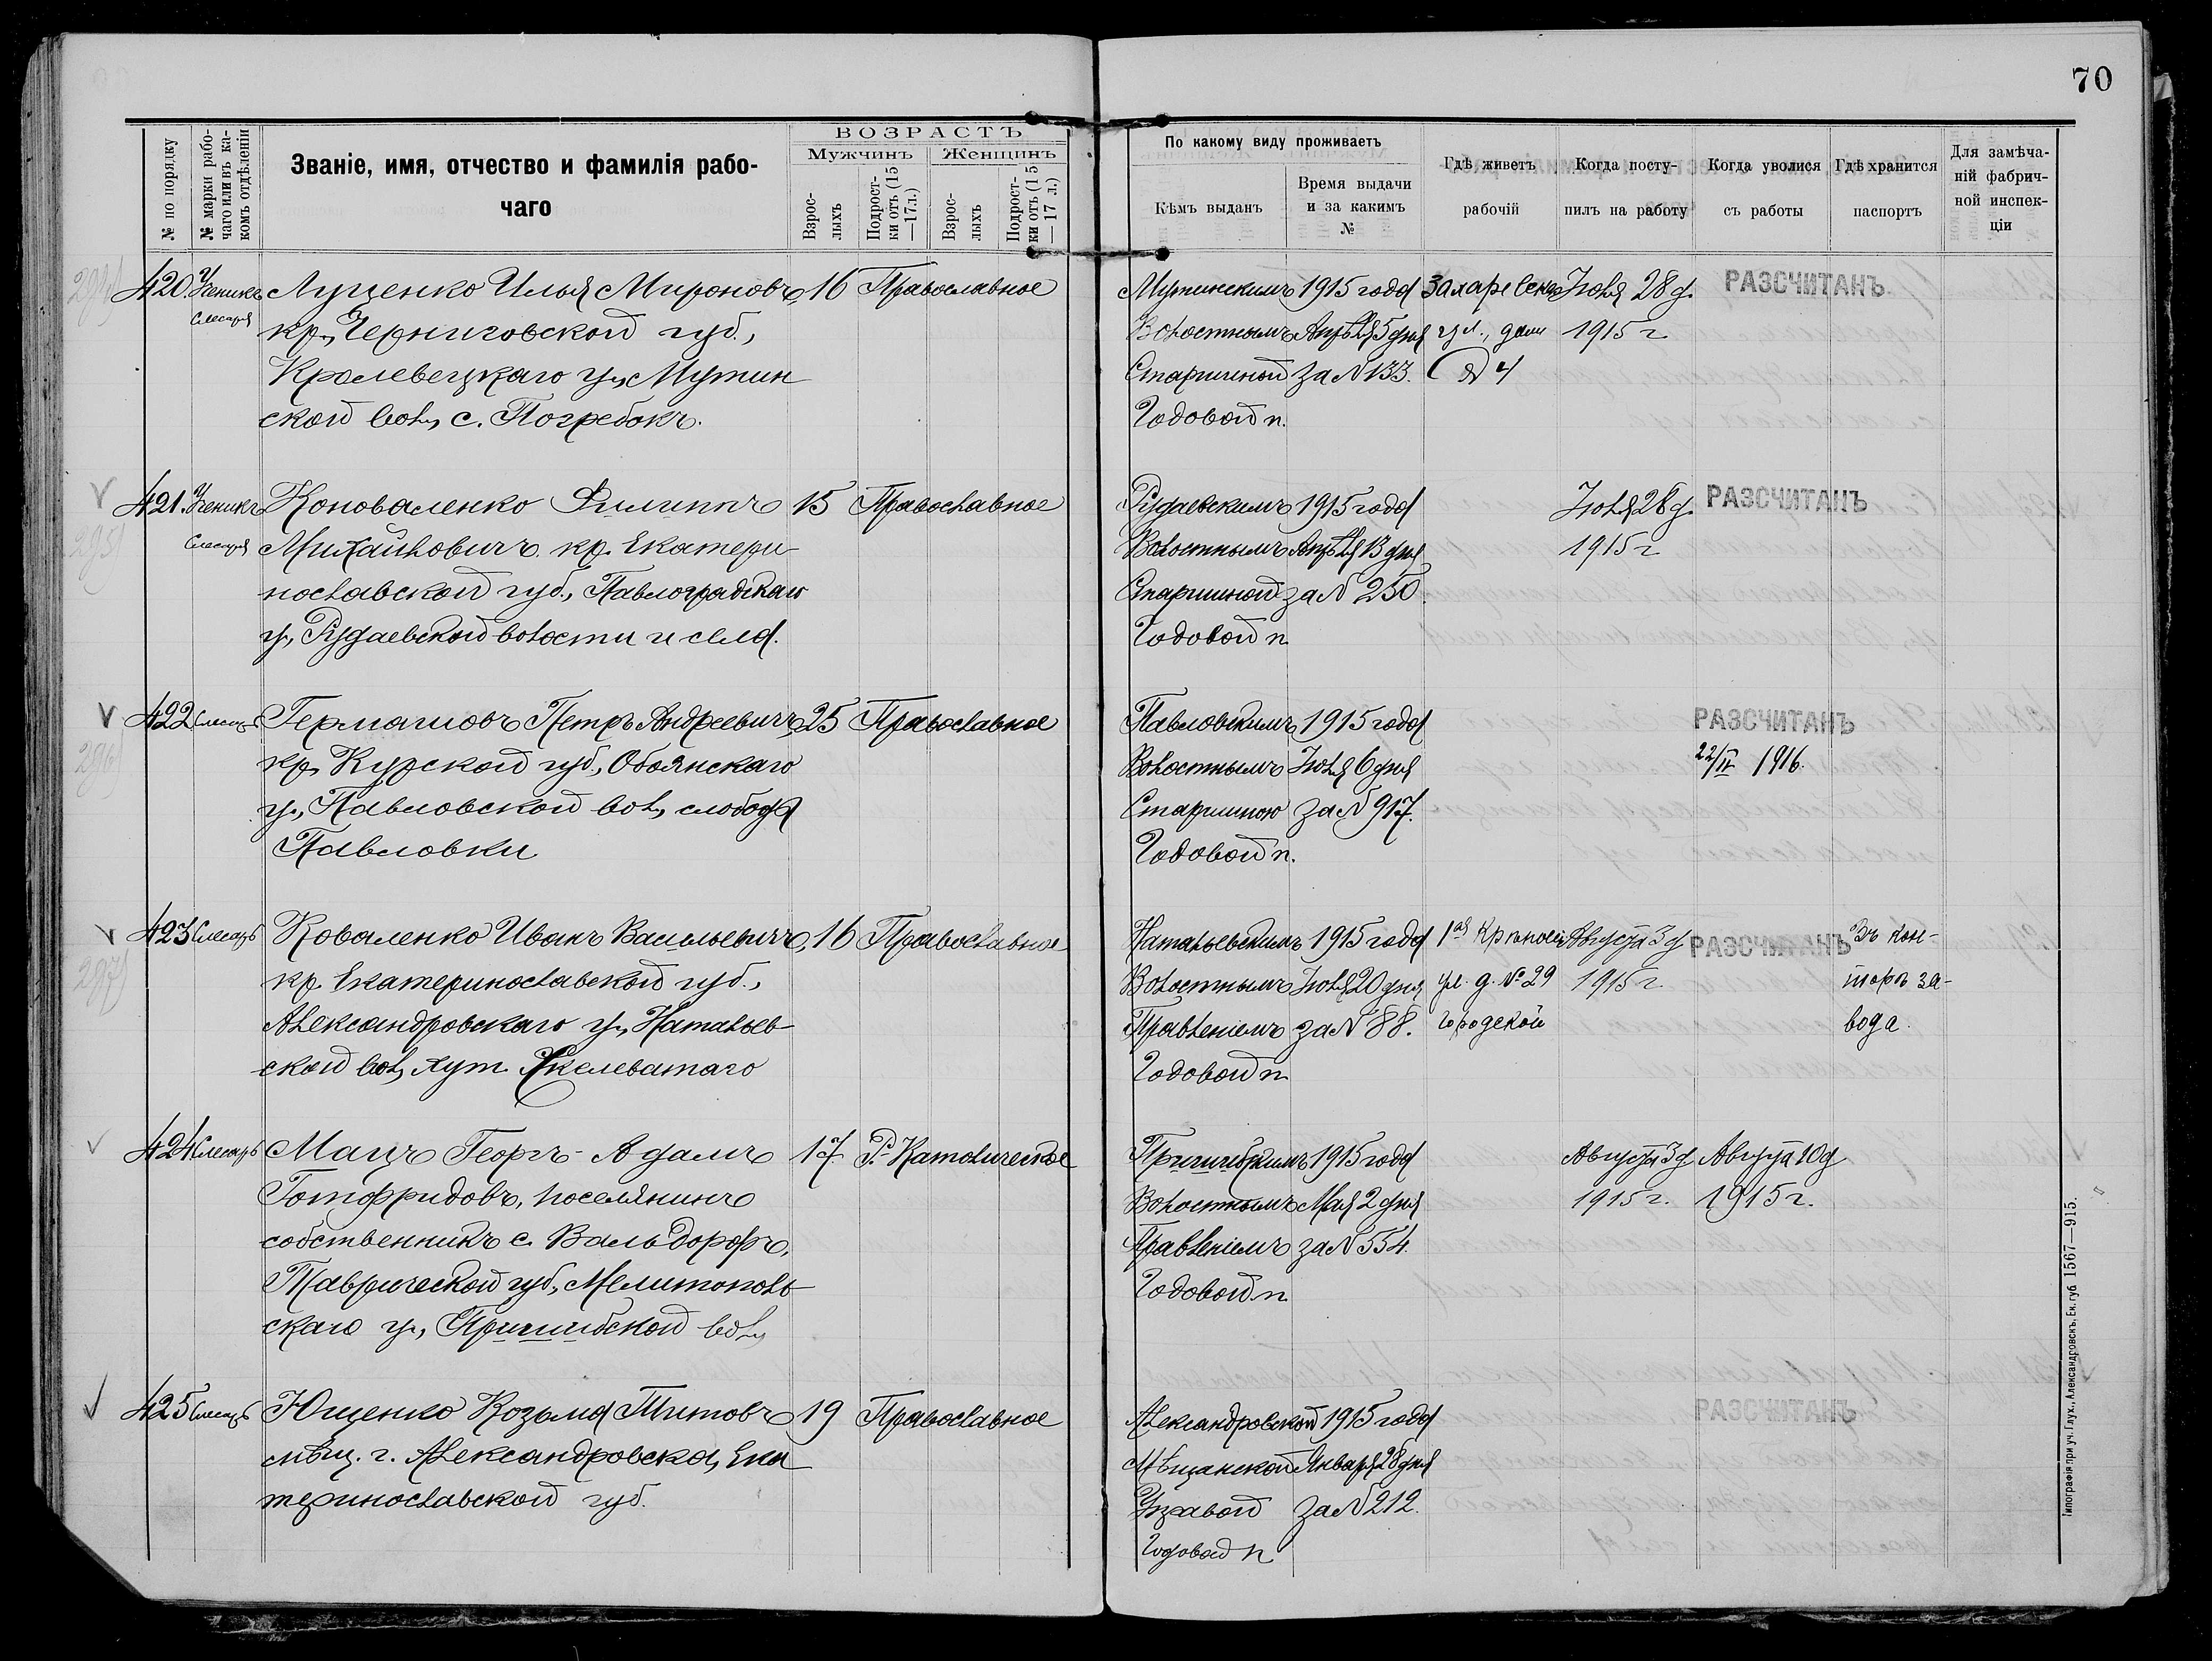 70
№ по порядку
№ марки рабо-
чаго или въ ка-
комъ отдѣленіи
Званіе, имя, отчество и фамилія рабо-
чаго
ВОЗРАСТЪ
Мужчинъ
Женщинъ
Взрос-
лыхъ
Подрост-
ки отъ (15
—17 л.)
Взрос-
лыхъ
Подрост-
ки отъ (15
— 17 л.)
По какому виду проживаетъ
Кѣмъ выданъ
Время выдачи
и за какимъ
№
Гдѣ живетъ
рабочій
Когда посту-
пилъ на работу
Когда уволися
съ работы
Гдѣ хранится
паспортъ
Для замѣча-
ній фабрич-
ной инспек-
ціи
420. Ученикъ Лущенко Илья Миронов. 16 Православное
Слесаря кр. Черниговской губ.,
Кролевецкаго у., Мутин
ской вол., с. Погребокъ.
Мутинскимъ 1915 года Іюля 28 д. РАЗСЧИТАНЪ
Волостнымъ Апрѣля 5 дня ул., домъ 1915 г
Старшиной за № 133. № 4
Годовой п.
421. Ученикъ Коноваленко Филиппъ 15 Православное
Слесаря Михайловичъ кр. Екатери
нославской губ., Павлоградскаго
у., Рудаевской волости и села.
Рудаевскимъ 1915 года Іюля 28 д. РАЗСЧИТАНЪ
Волостнымъ Апрѣля 13 дня 1915 г
Старшиной за № 250.
Годовой п
422 Слесарь Петръ Андреевичъ 25 Православное
кр. Курской губ., Обоянскаго
у., Павловской вол., слобода
Павловки
Павловскимъ 1915 года РАЗСЧИТАНЪ
Волостнымъ Іюля 6 дня 22/IV 1916.
Старшиною за № 917.
Годовой п.
423 Слесарь Коваленко Иванъ Васильевичъ, 16 Православное
кр. Екатеринославской губ.,
Александровскаго у., Натальев-
ской вол., хут.
Натальевскимъ 1915 года 1ая Августа 3 д РАЗСЧИТАНЪ Въ кон-
Волостнымъ Іюля 20 дня ул. д. № 29 1915 г. торѣ за-
Правленіемъ за № 88. Городской вода.
Годовой п
424 Слесарь Мацъ Георгъ-Адамъ 17 Р.-Католическое
Готфридовъ, поселянинъ
собственникъ с. Вальдорфъ,
Таврической губ., Мелитополь
скаго у., Пришибской вол.,
Пришибскимъ 1915 года Августа 3 д Августа 10 д
Волостнымъ Мая 2 дня 1915 г. 1915 г.
Правленіемъ за № 554.
Годовой п
425 Слесарь Ющенко Козьма Титовъ 19 Православное
мѣщ. г. Александровска, Ека
теринославской губ.
Александровской 1915 года РАЗСЧИТАНЪ
Мѣщанской Января 28 дня
Управой за № 212.
Годовой п
Типографія при уч. Глух., Александровскъ, Ек. губ. 1567—915.